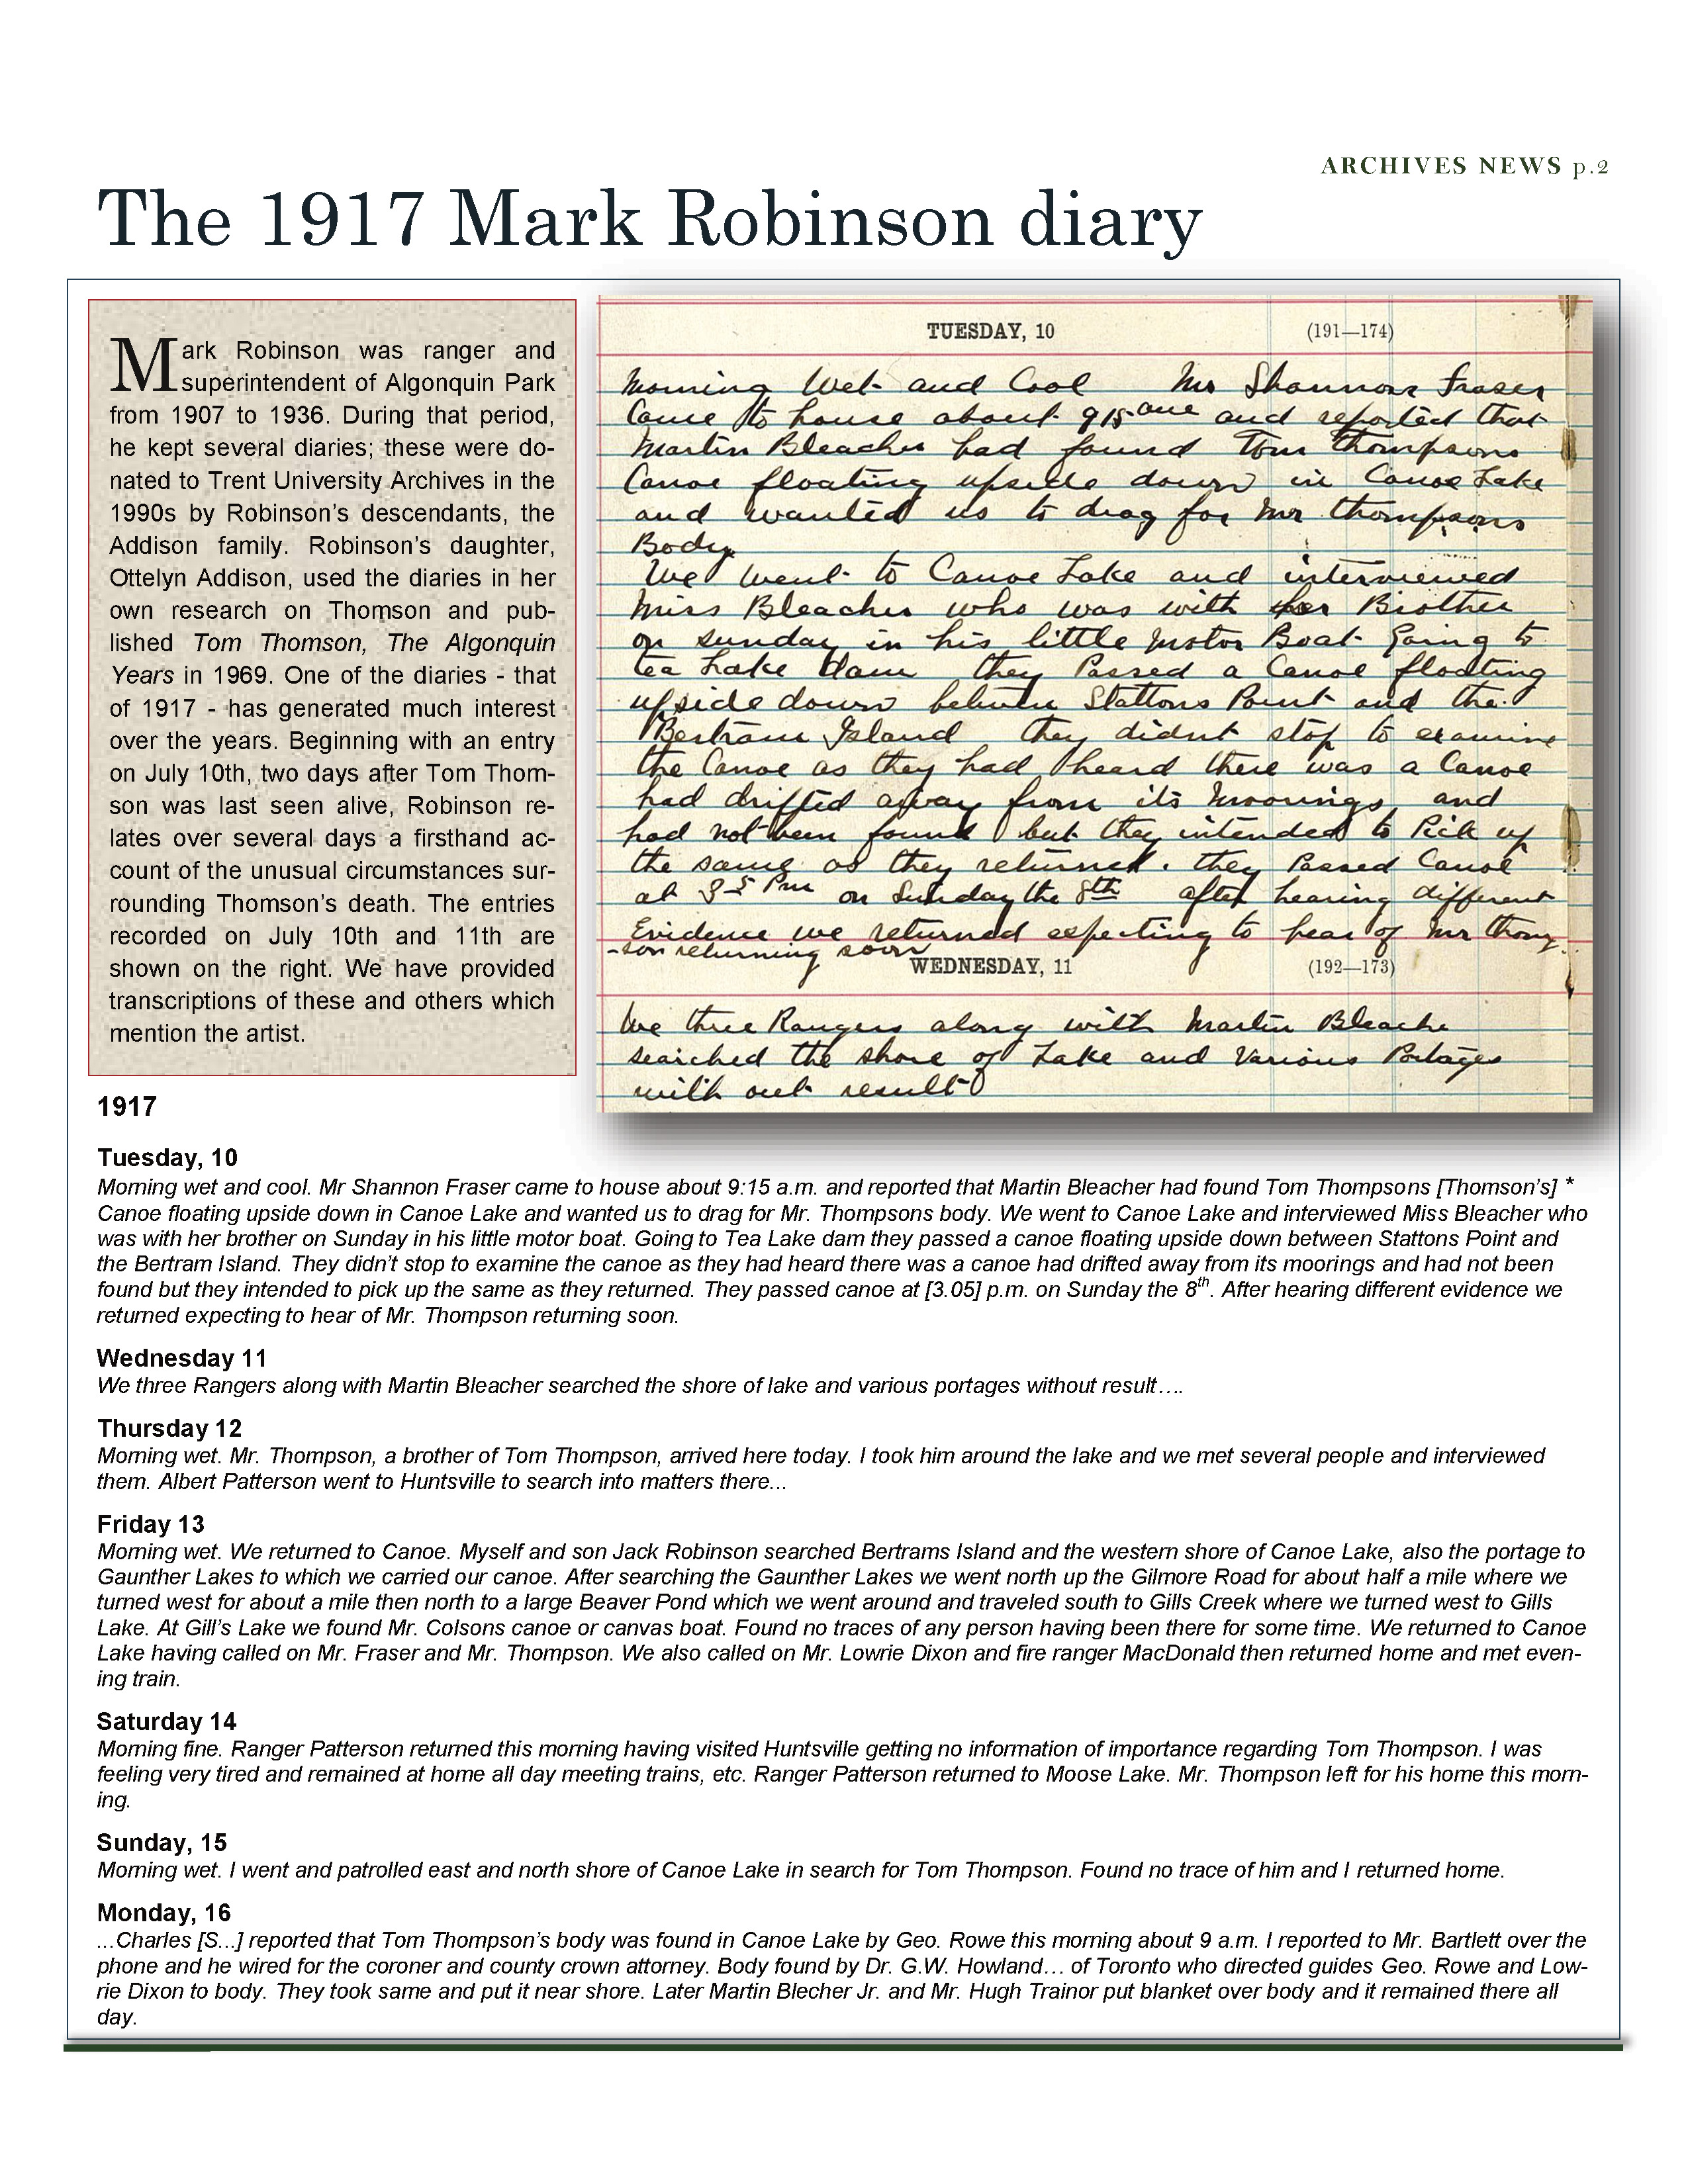 ARCHIVES NEWS p.2
The 1917 Mark Robinson diary
Mark Robinson was ranger and
superintendent of Algonquin Park
from 1907 to 1936. During that period,
he kept several diaries; these were do-
nated to Trent University Archives in the
1990s by Robinson's descendants, the
Addison family. Robinson's daughter,
Ottelyn Addison, used the diaries in her
own research on Thomson and pub-
lished Tom Thomson, The Algonquin
Years in 1969. One of the diaries - that
of 1917 - has generated much interest
over the years. Beginning with an entry
on July 10th, two days after Tom Thom-
son was last seen alive, Robinson re-
lates over several days a firsthand ac-
count of the unusual circumstances sur-
rounding Thomson's death. The entries
recorded on July 10th and 11th are
shown on the right. We have provided
transcriptions of these and others which
mention the artist.
TUESDAY, 10 (191—174)
Morning Wet and Cool Mr Shannon Fraser
Came to house about 915 am and reported that
Martin Bleacher had found Tom Thompsons
Canoe floating upside down in Canoe Lake
and wanted us to drag for Mr Thompsons
Body
We went to Canoe Lake and interviewed
Miss Bleacher who was with her Brother
on sunday in his little Motor Boat Going to
tea Lake Dam they Passed a Canoe floating
upside down between Stattons Point and the
Bertram Island they didnt stop to examine
the Canoe as they had heard there was a Canoe
had drifted away from its Moorings and
had not been found but they intended to Pick up
the same as they returned. they Passed Canoe
at 3 5 Pm on Sunday the 8th after hearing different
Evidence we returned expecting to hear of Mr Thomp
-son returning soon
WEDNESDAY, 11 (192—173)
We three Rangers along with Martin Bleacher
searched the shore of Lake and Various Portages
with out result
1917
Tuesday, 10
Morning wet and cool. Mr Shannon Fraser came to house about 9:15 a.m. and reported that Martin Bleacher had found Tom Thompsons [Thomson's] *
Canoe floating upside down in Canoe Lake and wanted us to drag for Mr. Thompsons body. We went to Canoe Lake and interviewed Miss Bleacher who
was with her brother on Sunday in his little motor boat. Going to Tea Lake dam they passed a canoe floating upside down between Stattons Point and
the Bertram Island. They didn't stop to examine the canoe as they had heard there was a canoe had drifted away from its moorings and had not been
found but they intended to pick up the same as they returned. They passed canoe at [3.05] p.m. on Sunday the 8th. After hearing different evidence we
returned expecting to hear of Mr. Thompson returning soon.
Wednesday 11
We three Rangers along with Martin Bleacher searched the shore of lake and various portages without result….
Thursday 12
Morning wet. Mr. Thompson, a brother of Tom Thompson, arrived here today. I took him around the lake and we met several people and interviewed
them. Albert Patterson went to Huntsville to search into matters there...
Friday 13
Morning wet. We returned to Canoe. Myself and son Jack Robinson searched Bertrams Island and the western shore of Canoe Lake, also the portage to
Gaunther Lakes to which we carried our canoe. After searching the Gaunther Lakes we went north up the Gilmore Road for about half a mile where we
turned west for about a mile then north to a large Beaver Pond which we went around and traveled south to Gills Creek where we turned west to Gills
Lake. At Gill's Lake we found Mr. Colsons canoe or canvas boat. Found no traces of any person having been there for some time. We returned to Canoe
Lake having called on Mr. Fraser and Mr. Thompson. We also called on Mr. Lowrie Dixon and fire ranger MacDonald then returned home and met even-
ing train.
Saturday 14
Morning fine. Ranger Patterson returned this morning having visited Huntsville getting no information of importance regarding Tom Thompson. I was
feeling very tired and remained at home all day meeting trains, etc. Ranger Patterson returned to Moose Lake. Mr. Thompson left for his home this morn-
ing.
Sunday, 15
Morning wet. I went and patrolled east and north shore of Canoe Lake in search for Tom Thompson. Found no trace of him and I returned home.
Monday, 16
...Charles [S...] reported that Tom Thompson's body was found in Canoe Lake by Geo. Rowe this morning about 9 a.m. I reported to Mr. Bartlett over the
phone and he wired for the coroner and county crown attorney. Body found by Dr. G.W. Howland… of Toronto who directed guides Geo. Rowe and Low-
rie Dixon to body. They took same and put it near shore. Later Martin Blecher Jr. and Mr. Hugh Trainor put blanket over body and it remained there all
day.